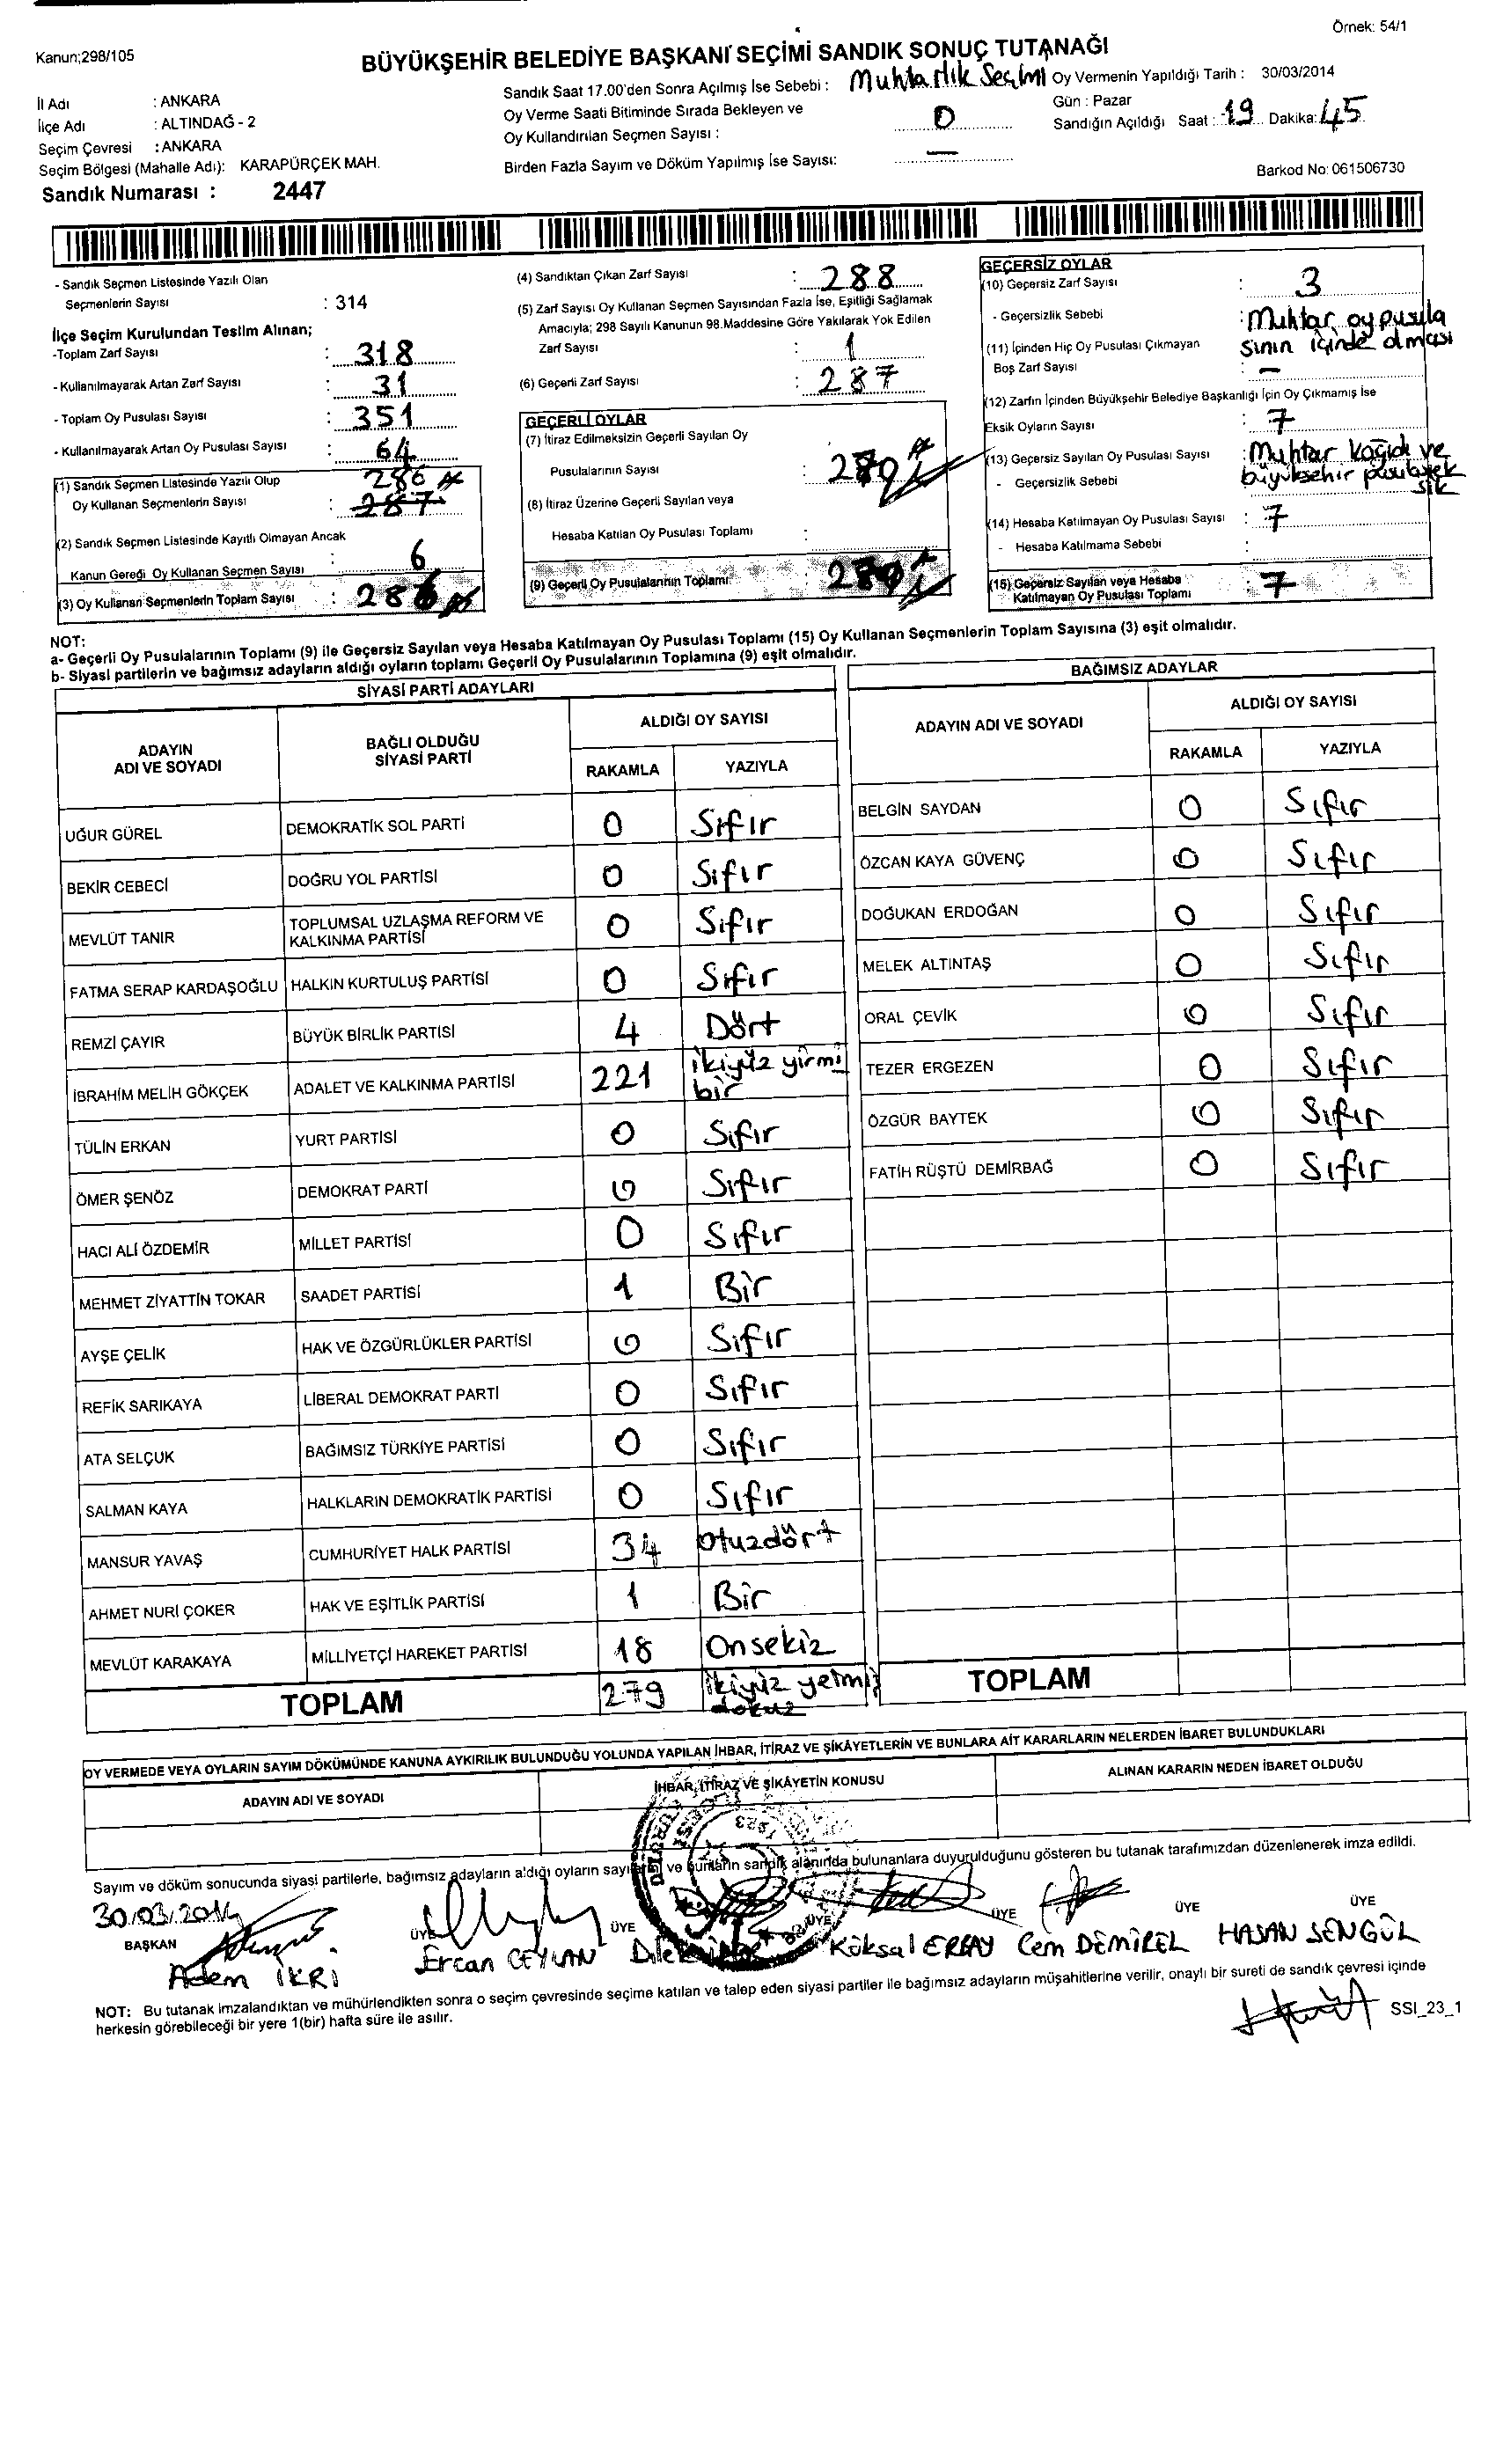 Örnek: 54/1
Kanun;298/105
BÜYÜKŞEHİR BELEDİYE BAŞKANI SEÇİMİ SANDIK SONUÇ TUTANAĞI
İl Adı : ANKARA
İlçe Adı : ALTINDAĞ - 2
Seçim Çevresi : ANKARA
Seçim Bölgesi (Mahalle Adı): KARAPÜRÇEK MAH.
Sandık Numarası : 2447
Sandık Saat 17.00'den Sonra Açılmış İse Sebebi : Muhtarlık Seçimi
Oy Verme Saati Bitiminde Sırada Bekleyen ve
Oy Kullandırılan Seçmen Sayısı : 0
Birden Fazla Sayım ve Döküm Yapılmış İse Sayısı: —
Oy Vermenin Yapıldığı Tarih : 30/03/2014
Gün : Pazar
Sandığın Açıldığı Saat : 19 Dakika: 45
Barkod No: 061506730
- Sandık Seçmen Listesinde Yazılı Olan
Seçmenlerin Sayısı : 314
İlçe Seçim Kurulundan Teslim Alınan;
-Toplam Zarf Sayısı : 318
- Kullanılmayarak Artan Zarf Sayısı : 31
- Toplam Oy Pusulası Sayısı : 351
- Kullanılmayarak Artan Oy Pusulası Sayısı : 64
(1) Sandık Seçmen Listesinde Yazılı Olup 286
Oy Kullanan Seçmenlerin Sayısı : 287
(2) Sandık Seçmen Listesinde Kayıtlı Olmayan Ancak
Kanun Gereği Oy Kullanan Seçmen Sayısı : 6
(3) Oy Kullanan Seçmenlerin Toplam Sayısı : 286
(4) Sandıktan Çıkan Zarf Sayısı : 288
(5) Zarf Sayısı Oy Kullanan Seçmen Sayısından Fazla İse, Eşitliği Sağlamak
Amacıyla; 298 Sayılı Kanunun 98.Maddesine Göre Yakılarak Yok Edilen
Zarf Sayısı : 1
(6) Geçerli Zarf Sayısı : 287
GEÇERLİ OYLAR
(7) İtiraz Edilmeksizin Geçerli Sayılan Oy
Pusulalarının Sayısı :
(8) İtiraz Üzerine Geçerli Sayılan veya
Hesaba Katılan Oy Pusulası Toplamı :
(9) Geçerli Oy Pusulalarının Toplamı :
GEÇERSİZ OYLAR
(10) Geçersiz Zarf Sayısı : 3
- Geçersizlik Sebebi : Muhtar oy pusula
sının içinde olması
(11) İçinden Hiç Oy Pusulası Çıkmayan
Boş Zarf Sayısı : —
(12) Zarfın İçinden Büyükşehir Belediye Başkanlığı İçin Oy Çıkmamış İse
Eksik Oyların Sayısı : 7
(13) Geçersiz Sayılan Oy Pusulası Sayısı : Muhtar kağıdı ve
- Geçersizlik Sebebi büyükşehir
(14) Hesaba Katılmayan Oy Pusulası Sayısı : 7
- Hesaba Katılmama Sebebi :
(15) Geçersiz Sayılan veya Hesaba
Katılmayan Oy Pusulası Toplamı : 7
NOT:
a- Geçerli Oy Pusulalarının Toplamı (9) ile Geçersiz Sayılan veya Hesaba Katılmayan Oy Pusulası Toplamı (15) Oy Kullanan Seçmenlerin Toplam Sayısına (3) eşit olmalıdır.
b- Siyasi partilerin ve bağımsız adayların aldığı oyların toplamı Geçerli Oy Pusulalarının Toplamına (9) eşit olmalıdır.
SİYASİ PARTİ ADAYLARI
ADAYIN ADI VE SOYADI BAĞLI OLDUĞU SİYASİ PARTİ ALDIĞI OY SAYISI
RAKAMLA YAZIYLA
UĞUR GÜREL DEMOKRATİK SOL PARTİ 0 Sıfır
BEKİR CEBECİ DOĞRU YOL PARTİSİ 0 Sıfır
MEVLÜT TANIR TOPLUMSAL UZLAŞMA REFORM VE KALKINMA PARTİSİ 0 Sıfır
FATMA SERAP KARDAŞOĞLU HALKIN KURTULUŞ PARTİSİ 0 Sıfır
REMZİ ÇAYIR BÜYÜK BİRLİK PARTİSİ 4 Dört
İBRAHİM MELİH GÖKÇEK ADALET VE KALKINMA PARTİSİ 221 ikiyüz yirmi bir
TÜLİN ERKAN YURT PARTİSİ 0 Sıfır
ÖMER ŞENÖZ DEMOKRAT PARTİ 0 Sıfır
HACI ALİ ÖZDEMİR MİLLET PARTİSİ 0 Sıfır
MEHMET ZİYATTİN TOKAR SAADET PARTİSİ 1 Bir
AYŞE ÇELİK HAK VE ÖZGÜRLÜKLER PARTİSİ 0 Sıfır
REFİK SARIKAYA LİBERAL DEMOKRAT PARTİ 0 Sıfır
ATA SELÇUK BAĞIMSIZ TÜRKİYE PARTİSİ 0 Sıfır
SALMAN KAYA HALKLARIN DEMOKRATİK PARTİSİ 0 Sıfır
MANSUR YAVAŞ CUMHURİYET HALK PARTİSİ 34 Otuzdört
AHMET NURİ ÇOKER HAK VE EŞİTLİK PARTİSİ 1 Bir
MEVLÜT KARAKAYA MİLLİYETÇİ HAREKET PARTİSİ 18 Onsekiz
TOPLAM 279 ikiyüz yetmiş dokuz
BAĞIMSIZ ADAYLAR
ADAYIN ADI VE SOYADI ALDIĞI OY SAYISI
RAKAMLA YAZIYLA
BELGİN SAYDAN 0 Sıfır
ÖZCAN KAYA GÜVENÇ 0 Sıfır
DOĞUKAN ERDOĞAN 0 Sıfır
MELEK ALTINTAŞ 0 Sıfır
ORAL ÇEVİK 0 Sıfır
TEZER ERGEZEN 0 Sıfır
ÖZGÜR BAYTEK 0 Sıfır
FATİH RÜŞTÜ DEMİRBAĞ 0 Sıfır
TOPLAM
OY VERMEDE VEYA OYLARIN SAYIM DÖKÜMÜNDE KANUNA AYKIRILIK BULUNDUĞU YOLUNDA YAPILAN İHBAR, İTİRAZ VE ŞİKÂYETLERİN VE BUNLARA AİT KARARLARIN NELERDEN İBARET BULUNDUKLARI
ADAYIN ADI VE SOYADI İHBAR, İTİRAZ VE ŞİKÂYETİN KONUSU ALINAN KARARIN NEDEN İBARET OLDUĞU
Sayım ve döküm sonucunda siyasi partilerle, bağımsız adayların aldığı oyların sayılarını ve bunların sandık alanında bulunanlara duyurulduğunu gösteren bu tutanak tarafımızdan düzenlenerek imza edildi.
30/03/2014
BAŞKAN ÜYE ÜYE ÜYE ÜYE ÜYE ÜYE
Adem İKRİ Ercan CEYLAN Dilek Köksal ERBAY Cem DEMİREL HASAN ŞENGÜL
NOT: Bu tutanak imzalandıktan ve mühürlendikten sonra o seçim çevresinde seçime katılan ve talep eden siyasi partiler ile bağımsız adayların müşahitlerine verilir, onaylı bir sureti de sandık çevresi içinde
herkesin görebileceği bir yere 1(bir) hafta süre ile asılır.
SSI_23_1